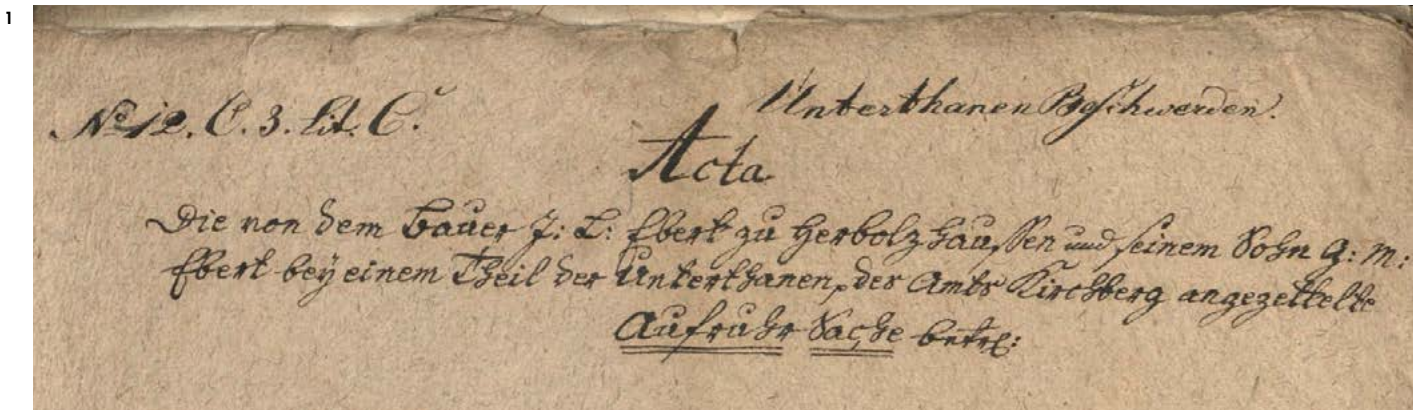 1
No 12. C. 3. Lit. C.
Unterthanen Beschwerden.
Acta
Die von dem Bauer J: L: Ebert zu Herbolzhaussen und seinem Sohn G: M:
Ebert bey einem Theil der Unterthanen, des Amts Kirchberg angezettelte
Aufruhr Sache betr: